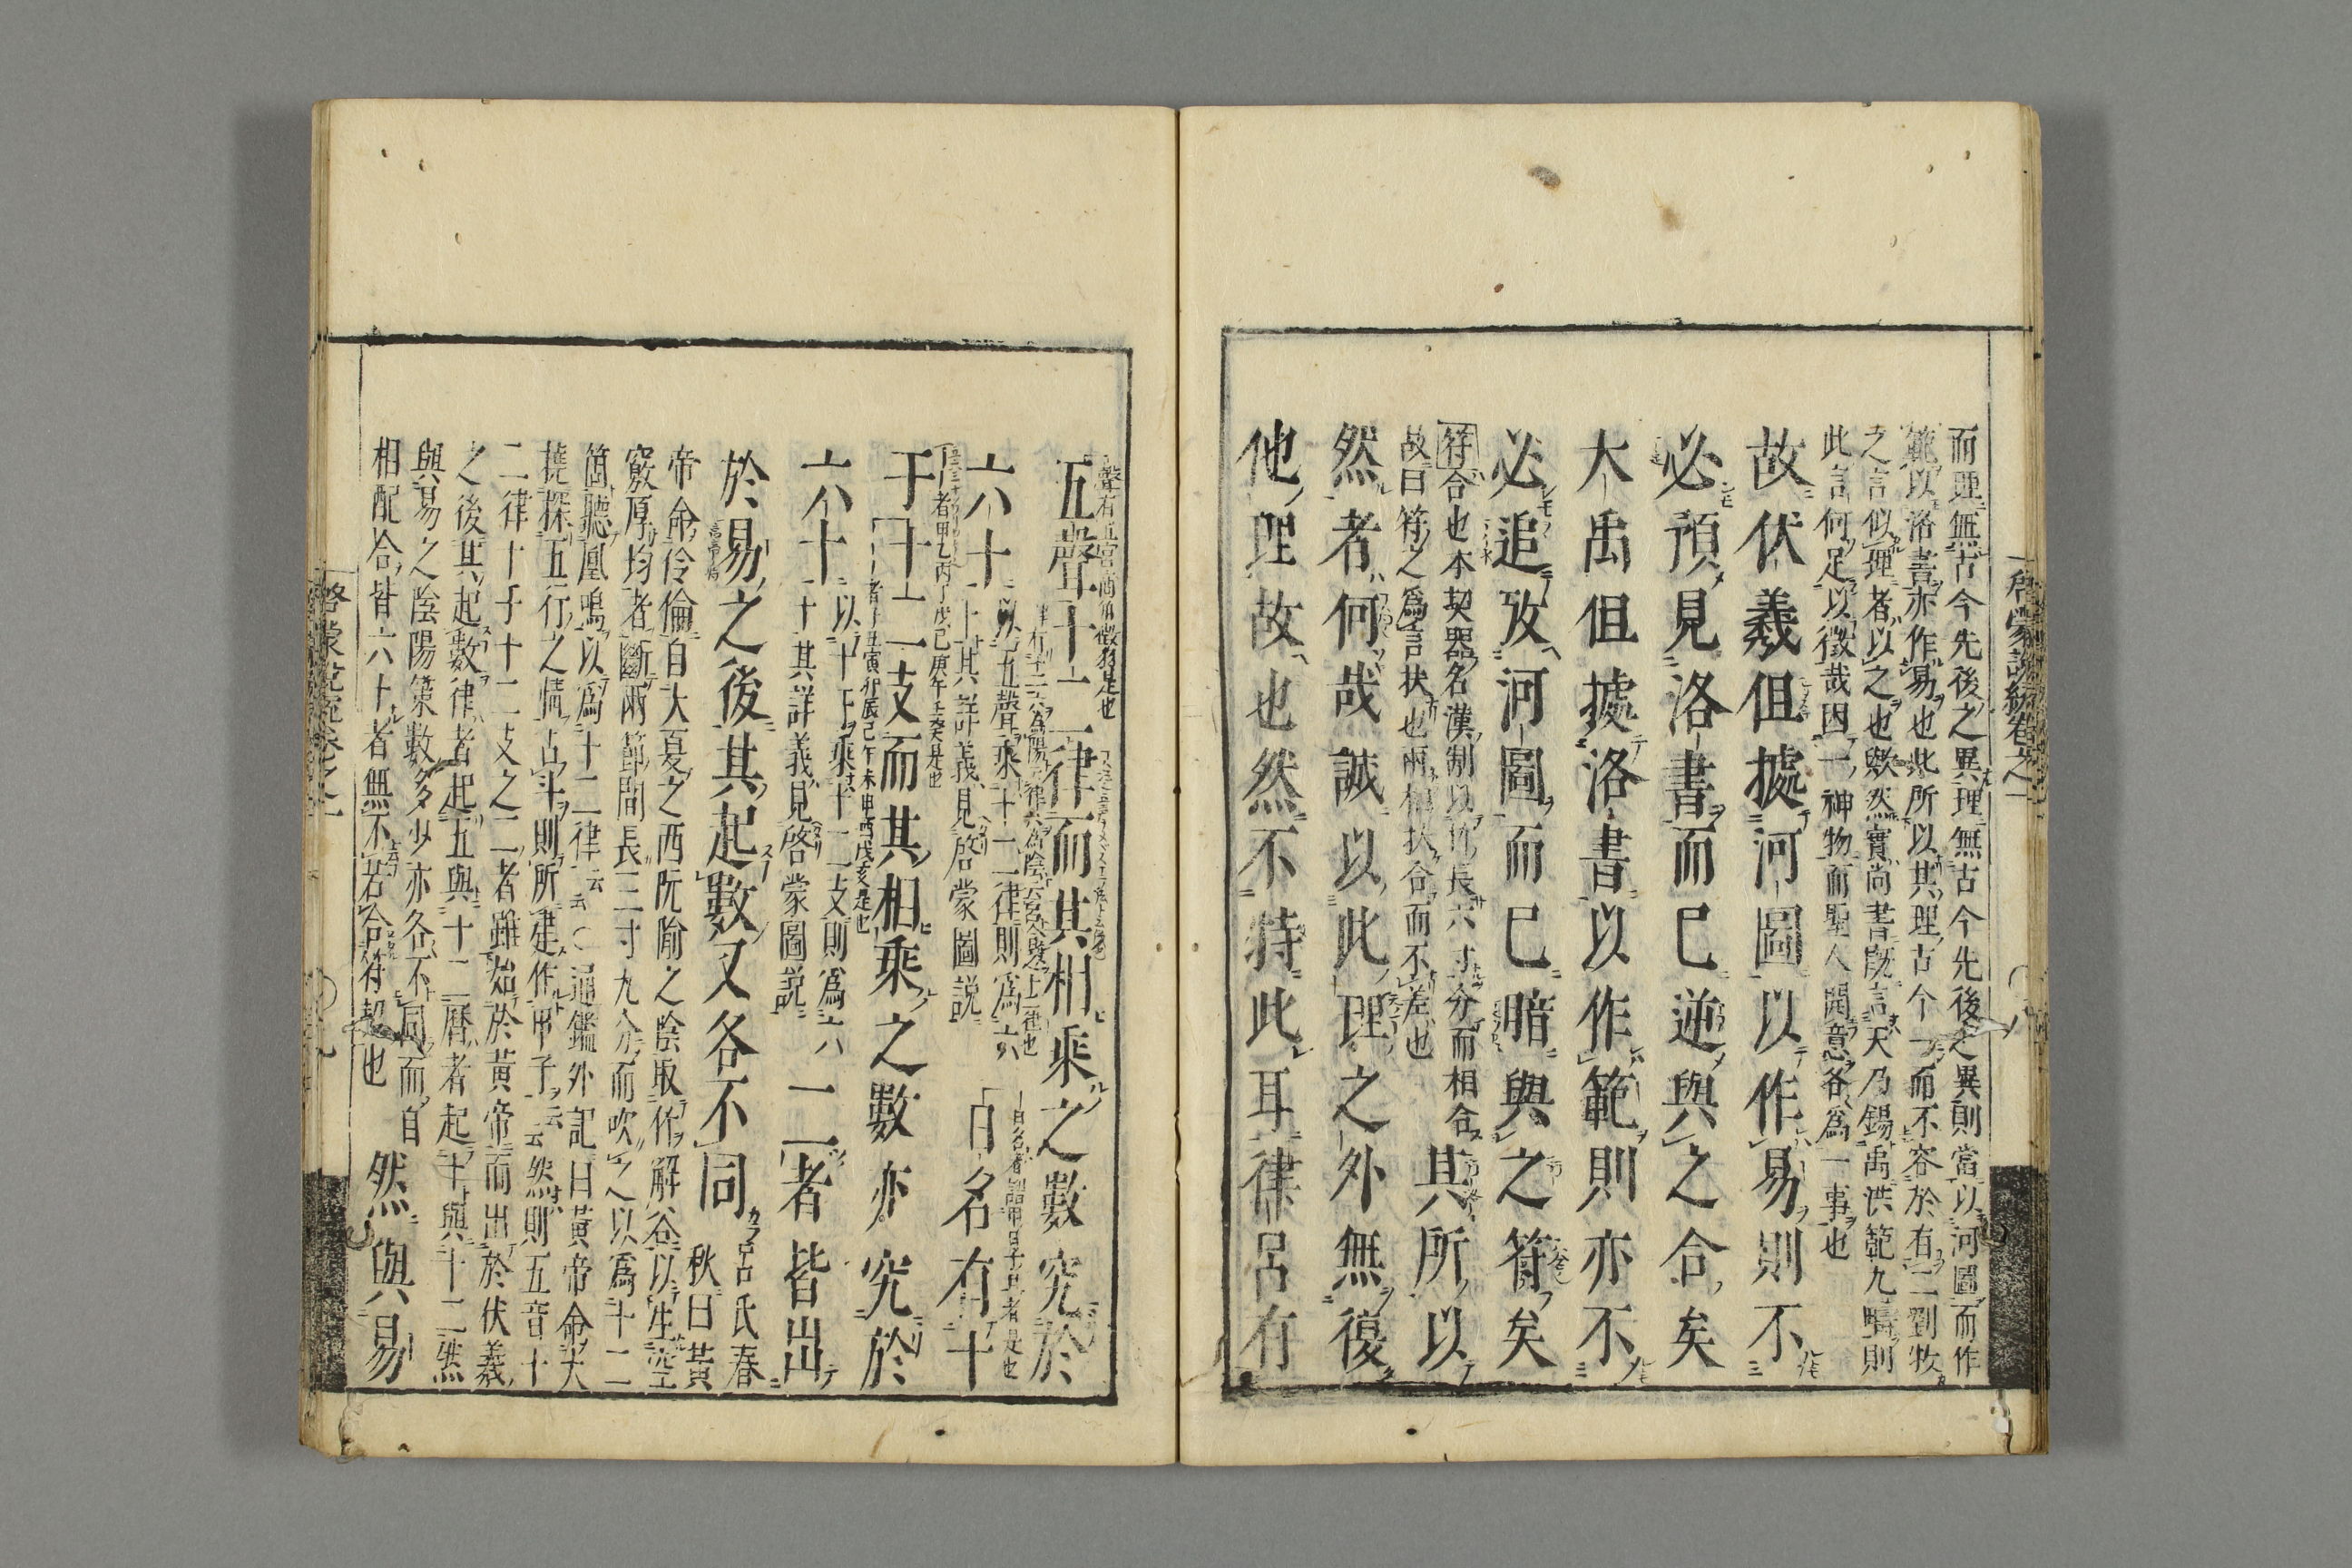 而理無古今先後之異理無古今先後之異則當以河圖而作
範以洛書亦作易也此所以其理古今一而不容於有二劉牧
之言似理者以之也歟然實尚書既言天乃錫禹洪範九疇則
此言何足以徵哉因一神物而聖人開意各爲一事也
故伏羲但據河圖以作易則不
必預見洛書而已逆與之合矣
大禹但據洛書以作範則亦不
必追攷河圖而已暗與之符矣
符合也本契器名漢制以竹長六寸分而相合
故曰符之爲言扶也兩相扶合而不差也
其所以
然者何哉誠以此理之外無復
他理故也然不特此耳律呂有
五聲十二律而其相乘之數究於
六十
以五聲乘十二律則爲六
十其詳義見啓蒙圖説
日名有十
干十二支而其相乘之數亦究於
六十
以十干乘十二支則爲六
十其詳義見啓蒙圖説
二者皆出
於易之後其起數又各不同
呂氏春
秋曰黃
帝命伶倫自大夏之西阮隃之陰取竹解谷以生空
竅厚均者斷兩節間長三寸九分而吹之以爲十二
筩聽鳳鳴以爲十二律云云○通鑑外記曰黃帝命大
撓探五行之情占斗則所建作甲子云云然則五音十
二律十干十二支之二者雖始於黃帝而出於伏羲
之後其起數律者起五與十二曆者起十與十二然
與易之陰陽策數多少亦各不同而自
相配合皆六十者無不若合符契也
然與易
啓蒙説統卷之一